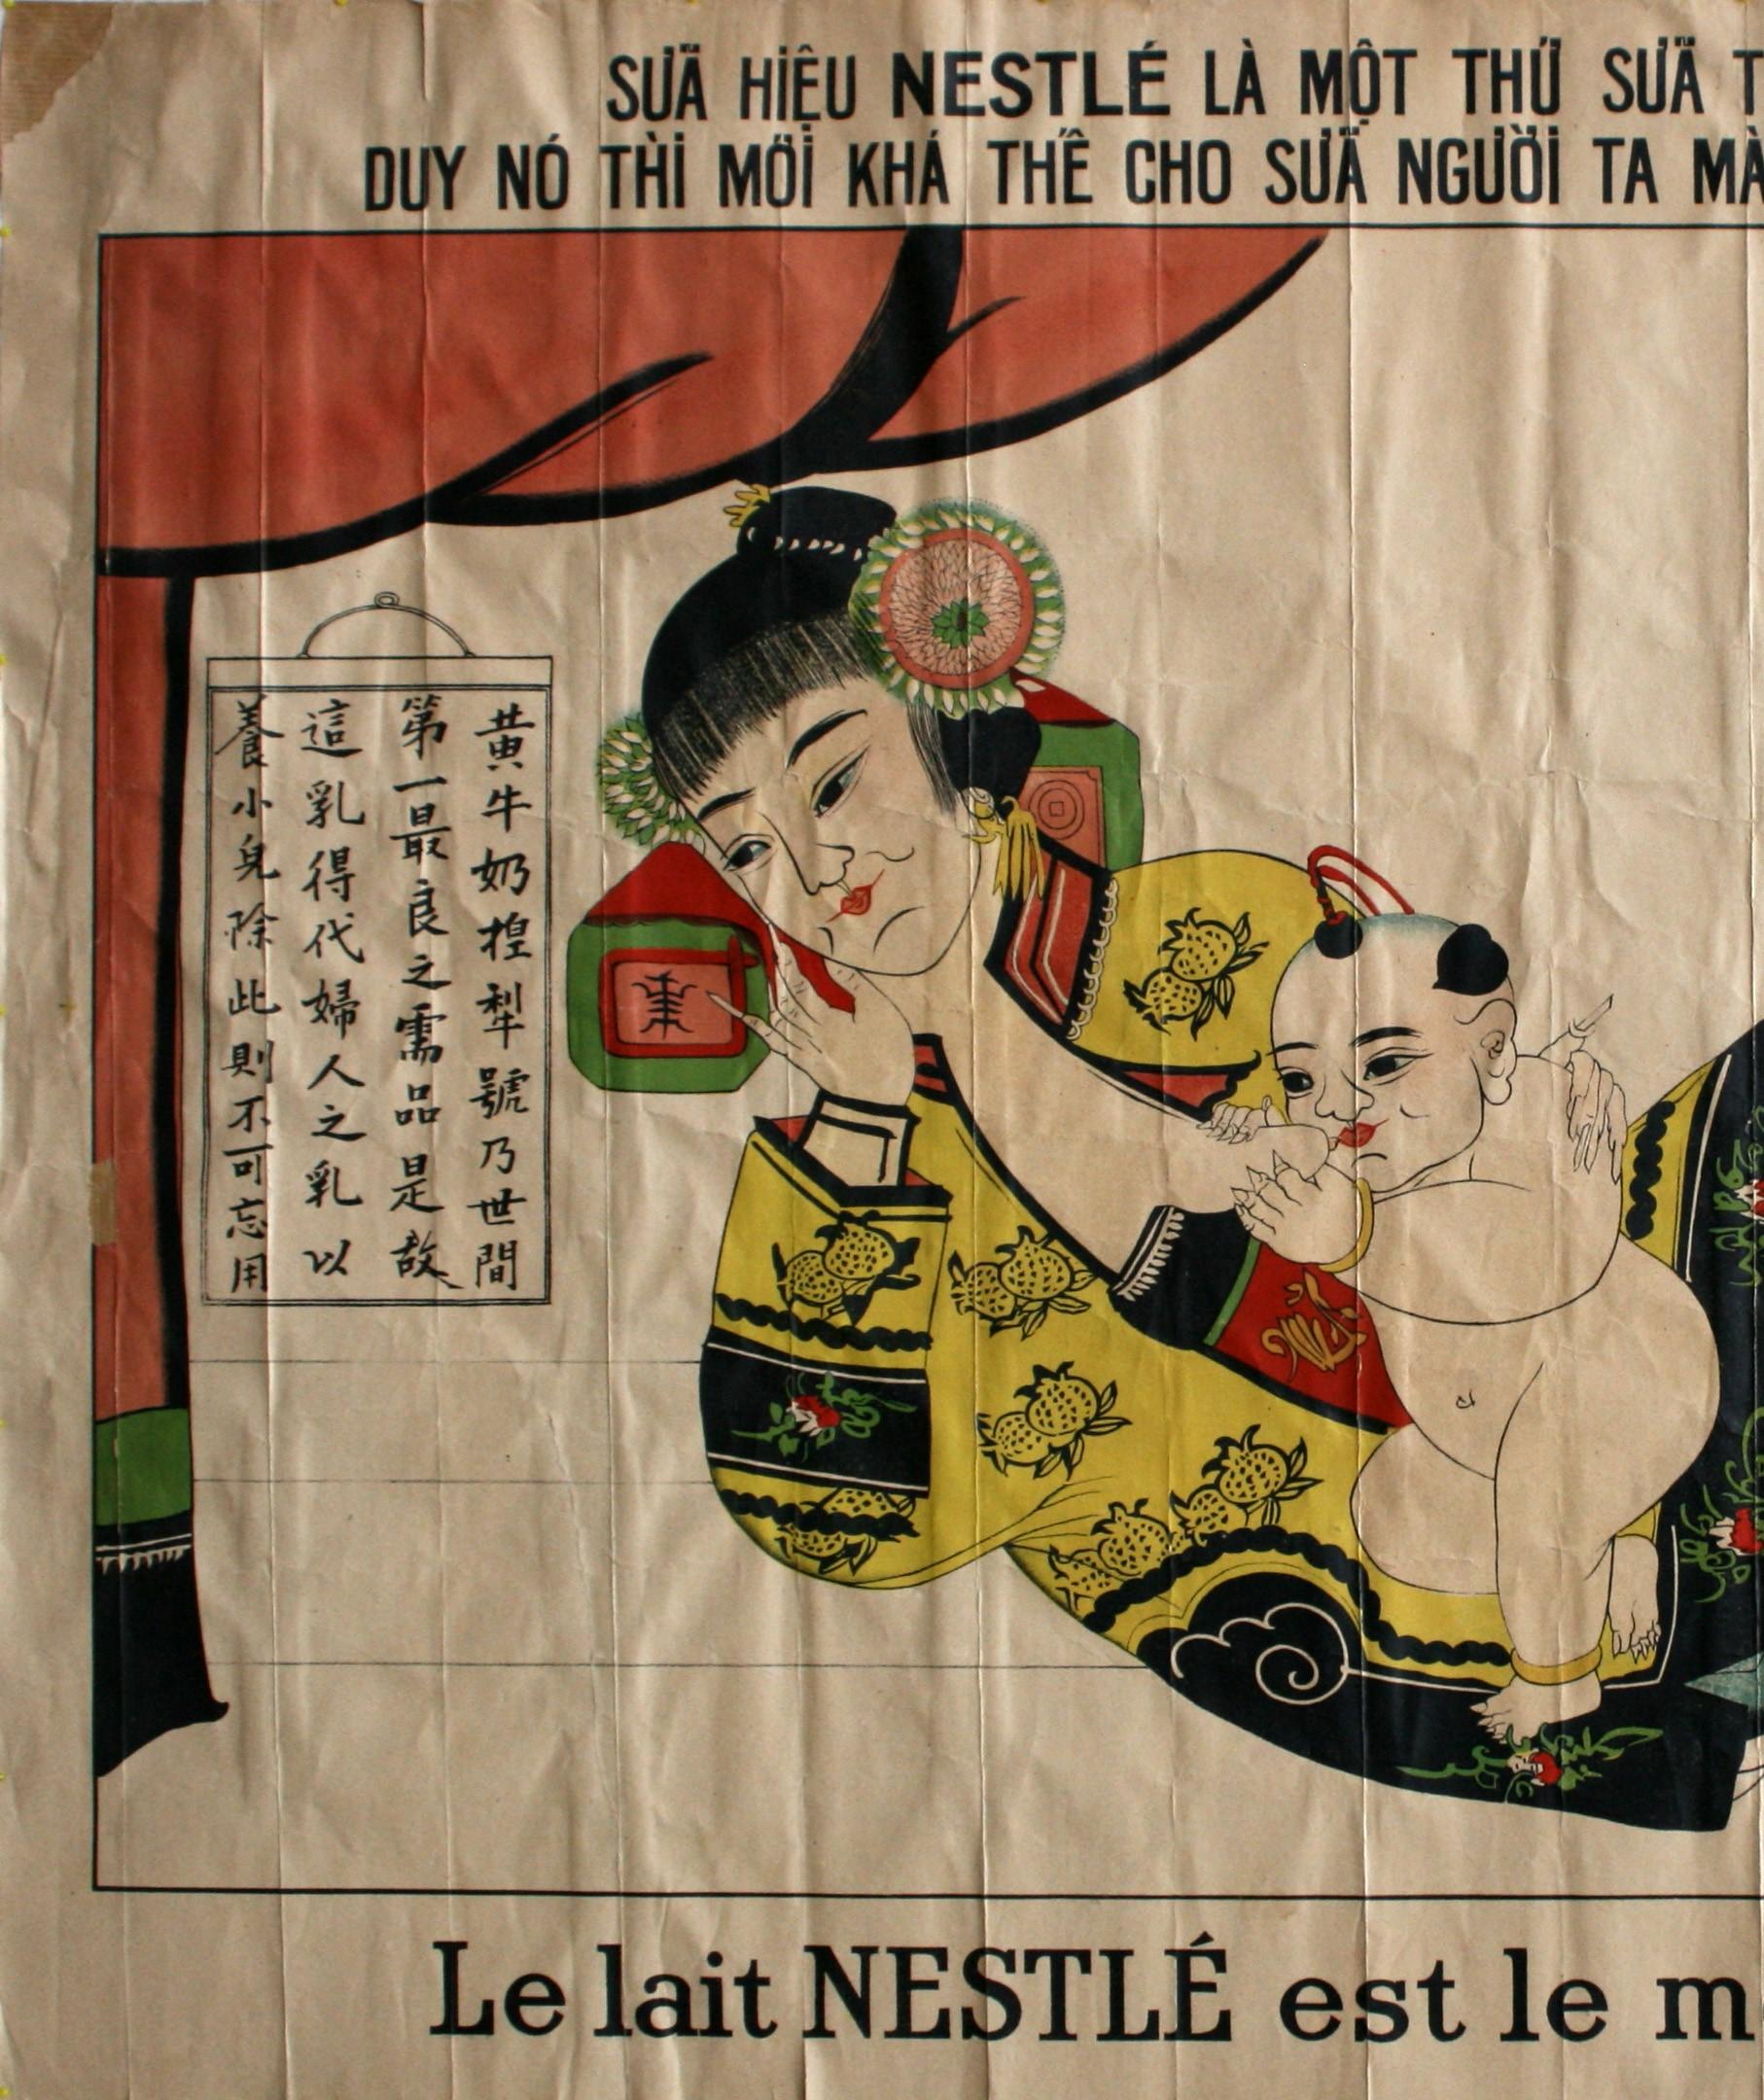 SỮA HIỆU NESTLÉ LÀ MỘT THỨ SỮA T
DUY NÓ THÌ MỚI KHÁ THẾ CHO SỮA NGƯỜI TA MÀ
黄牛奶揑犁號乃世間
第一最良之需品是故
這乳得代婦人之乳以
養小兒除此則不可忘用
Le lait NESTLÉ est le m